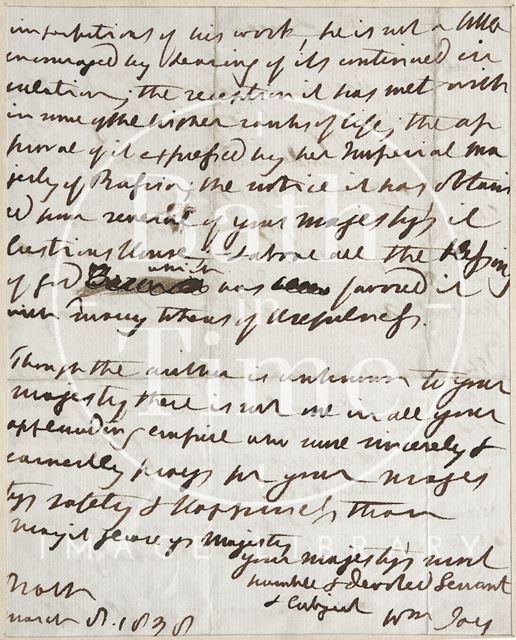 imperfections of his work, he is not a little
encouraged by hearing of its continued cir
culation; the reception it has met with
in some of the higher ranks of life; the ap
proval of it expressed by her Imperial Ma
jesty of Russia, the notice it has obtain
ed from several of your majesty's il
lustrious House & above all the blessing
of God which has favored it
with many tokens of usefulness.
Though the author is unknown to your
majesty there is not one in all your
applauding empire who more sincerely &
earnestly prays for your majes
ty's safety & happiness than
may it please yr Majesty
your majesty's most
humble & devoted Servant
& Subject
Wm Jay
Bath
March 8. 1838
Bath
in
Time
IMAGE LIBRARY